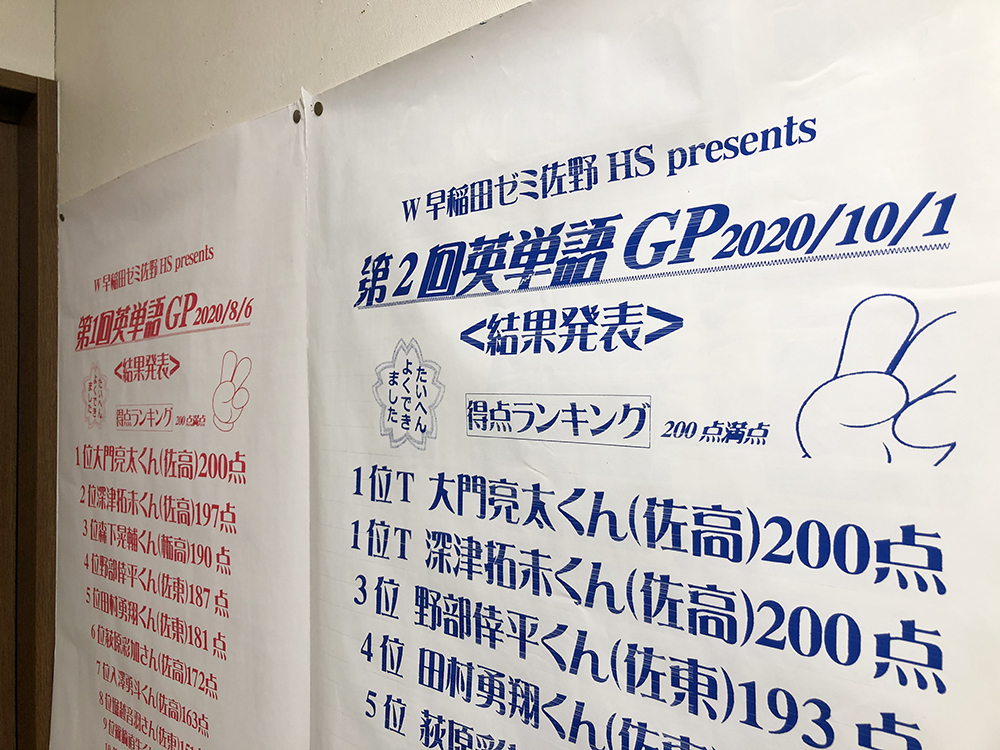 W 早稲田ゼミ佐野 HS presents
第1回英単語 GP 2020/8/6
<結果発表>
たいへん
よくでき
ました
得点ランキング 200点満点
1位大門亮太くん(佐高)200点
2位深津拓未くん(佐高)197点
3位森下晃輔くん(栃高)190点
4位野部倖平くん(佐東)187点
5位田村勇翔くん(佐東)181点
6位荻原彩加さん(佐高)172点
7位入澤勇斗くん(佐高)163点
8位 さん(佐東)
9位
W 早稲田ゼミ佐野 HS presents
第2回英単語 GP 2020/10/1
<結果発表>
たいへん
よくでき
ました
得点ランキング 200点満点
1位T 大門亮太くん(佐高)200点
1位T 深津拓未くん(佐高)200点
3位 野部倖平くん(佐東)193点
4位 田村勇翔くん(佐東)
5位 荻原彩